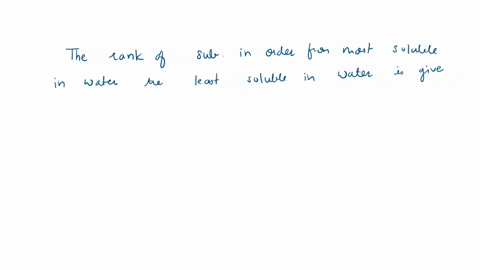 The rank of sub. in order from most soluble
in water the least soluble in water is give